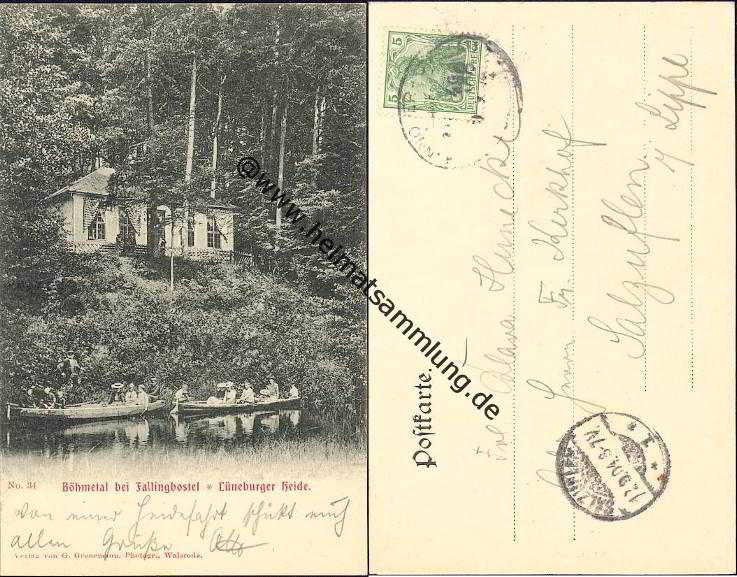 No. 34 Böhmetal bei Fallingbostel * Lüneburger Heide.
von einer Heidefahrt schickt euch
allen Grüße Otto
Verlag von G. Gronemann, Photogr., Walsrode.
@www.heimatsammlung.de
5 5
DEUTSCHES REICH
Postkarte.
Frl Clara
Herrn Fr. Kerkhof
Salzuflen
Lippe
12.9.04. 6-7V.